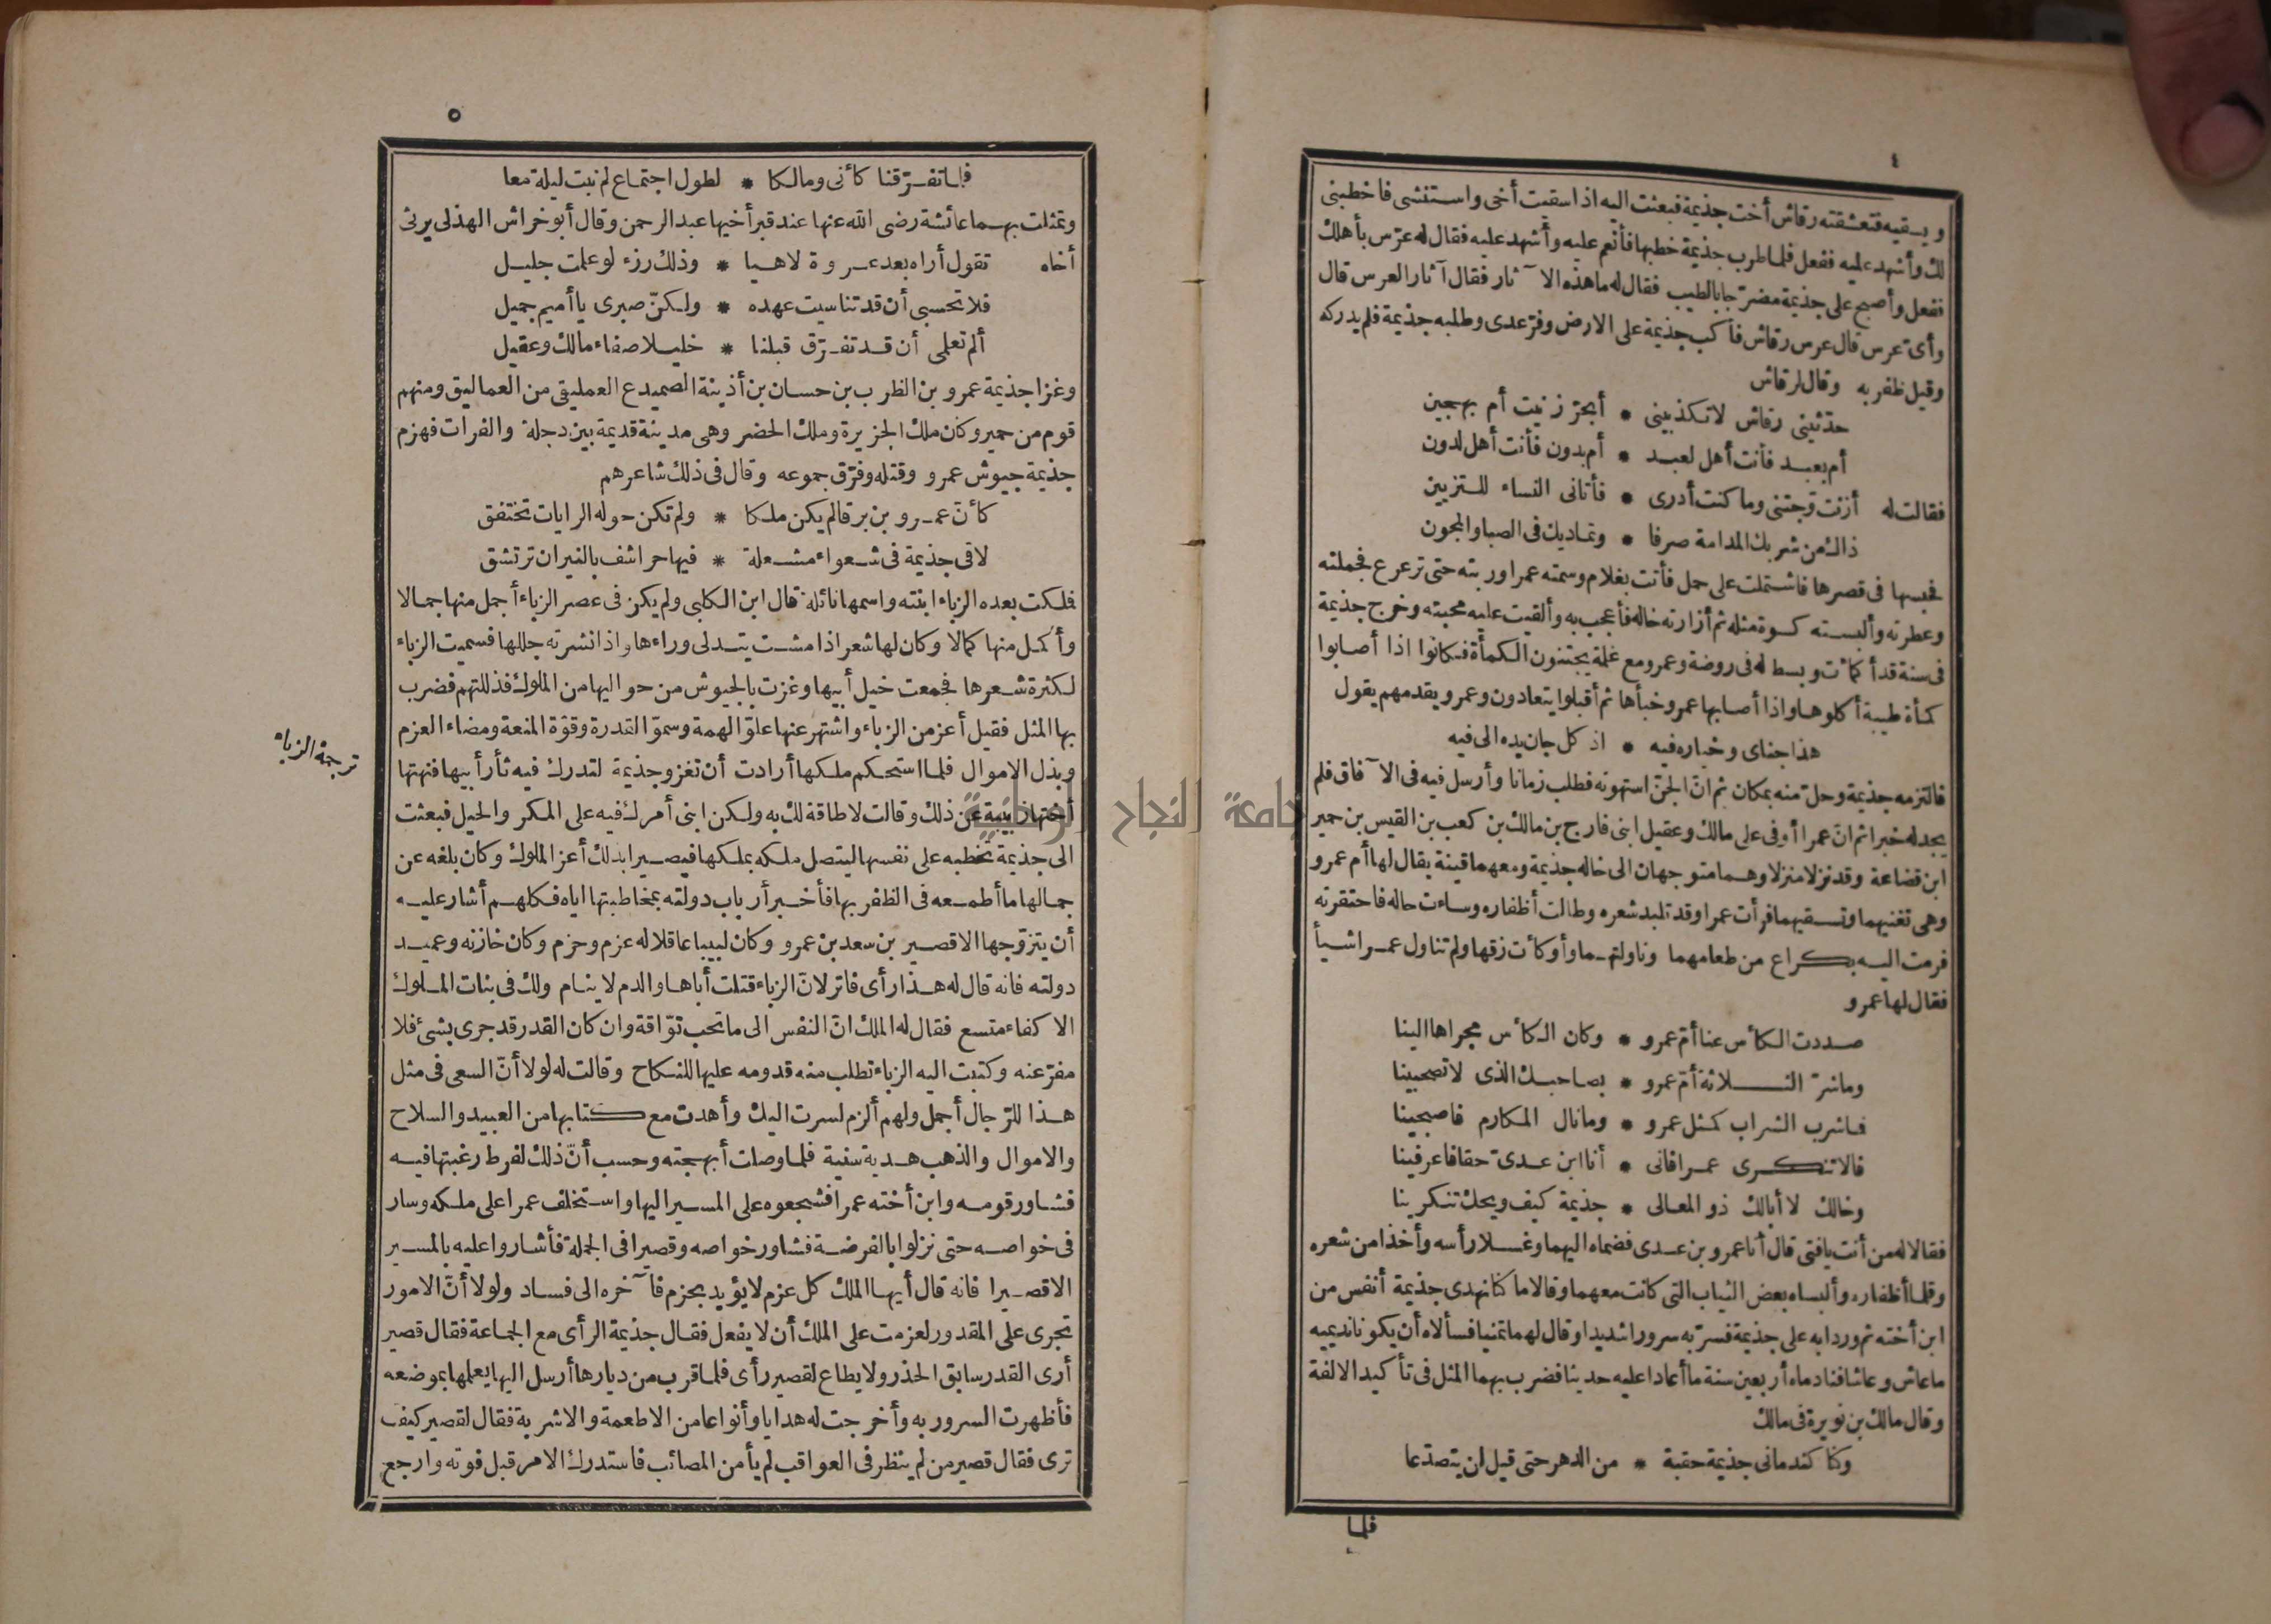 ٤
ويسقيه فتعشقته رقاش أخت جذيمة فبعثت اليه اذا سقيت أخى واستنشى فاخطبنى
لك وأشهد عليه ففعل فلما طرب جذيمة خطبها فأنعم عليه وأشهد عليه فقال له عرّس بأهلك
ففعل وأصبح على جذيمة مضرّجا بالطيب فقال له ما هذه الآثار فقال آثار العرس قال
وأىّ عرس قال عرس رقاش فأكب جذيمة على الارض وفرّ عدى وطلبه جذيمة فلم يدركه
وقيل ظفر به وقال لرقاش
حدّثينى رقاش لا تكذبينى * أبحرّ زنيت أم بهجين
أم بعبد فأنت أهل لعبد * أم بدون فأنت أهل لدون
فقالت له أنت زوّجتنى وما كنت أدرى * فأتانى النساء للتزيين
ذاك من شربك المدامة صرفا * وتماديك فى الصبا والمجون
فحبسها فى قصرها فاشتملت على حمل فأتت بغلام وسمته عمرا وربته حتى ترعرع فجملته
وعطرته وألبسته كسوة مثله ثم أزارته خاله فأعجب به وألقيت عليه محبته وخرج جذيمة
فى سنة قد أكمأت وبسط له فى روضة وعمرو مع غلمة يجتنون الكمأة فكانوا اذا أصابوا
كمأة طيبة أكلوها واذا أصابها عمرو خبأها ثم أقبلوا يتعادون وعمرو يقدمهم يقول
هذا جناى وخياره فيه * اذ كل جان يده الى فيه
فالتزمه جذيمة وحل منه بمكان ثم انّ الجنّ استهوته فطلب زمانا وأرسل فيه فى الآفاق فلم
يجد له خبرا ثم انّ عمرا أوفى على مالك وعقيل ابنى فارج بن مالك بن كعب بن القيس بن حمير
ابن قضاعة وقد نزلا منزلا وهما متوجهان الى خاله جذيمة ومعهما قينة يقال لها أم عمرو
وهى تغنيهما وتسقيهما فرأت عمرا وقد تلبد شعره وطالت أظفاره وساءت حاله فاحتقرته
فرمت اليه بكراع من طعامهما وناولتهما وأوكأت زقها ولم تناول عمرا شيأ
فقال لها عمرو
صددت الكأس عنا أمّ عمرو * وكان الكأس مجراها الينا
وما شرّ الثلاثة أمّ عمرو * بصاحبك الذى لا تصحبينا
فاشرب الشراب كمثل عمرو * وما نال المكارم فاصبحينا
فالا تنكرى عمرا فانى * أنا ابن عدىّ حقا فاعرفينا
وخالك لا أبالك ذو المعالى * جذيمة كيف ويحك تنكرينا
فقالا له من أنت يافتى قال أنا عمرو بن عدى فضماه اليهما وغسلا رأسه وأخذا من شعره
وقلما أظفاره وألبساه بعض الثياب التى كانت معهما وقالا ما كنا نهدى جذيمة أنفس من
ابن أخته ثم وردا به على جذيمة فسرّ به سرورا شديدا وقال لهما تمنيا فسألاه أن يكونا نديميه
ما عاش وعاشا فنادماه أربعين سنة ما أعادا عليه حديثا فضرب بهما المثل فى تأكيد الالفة
وقال مالك بن نويرة فى مالك
وكنا كندمانى جذيمة حقبة * من الدهر حتى قيل ان يتصدّعا
فلما
٥
فلما تفرّقنا كأنى ومالكا * لطول اجتماع لم نبت ليلة معا
وتمثلت بهما عائشة رضى الله عنها عند قبر أخيها عبد الرحمن وقال أبو خراش الهذلى يرثى
أخاه تقول أراه بعد عروة لاهيا * وذلك رزء لو علمت جليل
فلا تحسبى أن قد تناسيت عهده * ولكنّ صبرى يا أميم جميل
ألم تعلمى أن قد تفرّق قبلنا * خليلا صفاء مالك وعقيل
وغزا جذيمة عمرو بن الظرب بن حسان بن أذينة الصميدع العمليقى من العماليق ومنهم
قوم من حمير وكان ملك الجزيرة وملك الحضر وهى مدينة قديمة بين دجلة والفرات فهزم
جذيمة جيوش عمرو وقتله وفرّق جموعه وقال فى ذلك شاعرهم
كأنّ عمرو بن برقا لم يكن ملكا * ولم تكن حوله الرايات تختفق
لاقى جذيمة فى شعواء مشعلة * فيها حراشف بالنيران ترتشق
فملكت بعده الزباء ابنته واسمها نائلة قال ابن الكلبى ولم يكن فى عصر الزباء أجمل منها جمالا
وأكمل منها كمالا وكان لها شعر اذا مشت يتدلى وراءها واذا نشرته جللها فسميت الزباء
لكثرة شعرها فجمعت خيل أبيها وغزت بالجيوش من حواليها من الملوك فذللتهم فضرب
بها المثل فقيل أعز من الزباء واشتهر عنها علوّ الهمة وسموّ القدرة وقوّة المنعة ومضاء العزم
وبذل الاموال فلما استحكم ملكها أرادت أن تغزو جذيمة لتدرك فيه ثأر أبيها فنهتها
أختها زبيبة عن ذلك وقالت لا طاقة لك به ولكن ابنى أمرك فيه على المكر والحيل فبعثت
الى جذيمة تخطبه على نفسها ليتصل ملكه بملكها فيصيرا بذلك أعز الملوك وكان بلغه عن
جمالها ما أطمعه فى الظفر بها فأخبر أرباب دولته بمخاطبتها اياه فكلهم أشار عليه
أن يتزوّجها الا قصير بن سعد بن عمرو وكان لبيبا عاقلا له عزم وحزم وكان خازنه وعميد
دولته فانه قال له هذا رأى فاتر لانّ الزباء قتلت أباها والدم لا ينام ولك فى بنات الملوك
الاكفاء متسع فقال له الملك انّ النفس الى ما تحب توّاقة وان كان القدر قد جرى بشئ فلا
مفرّ عنه وكتبت اليه الزباء تطلب منه قدومه عليها للنكاح وقالت له لولا أنّ السعى فى مثل
هذا للرّجال أجمل ولهم ألزم لسرت اليك وأهدت مع كتابها من العبيد والسلاح
والاموال والذهب هدية سنية فلما وصلت أبهجته وحسب أنّ ذلك لفرط رغبتها فيه
فشاور قومه وابن أخته عمرا فشجعوه على المسير اليها واستخلف عمرا على ملكه وسار
فى خواصه حتى نزلوا بالفرضة فشاور خواصه وقصيرا فى الجملة فأشاروا عليه بالمسير
الا قصيرا فانه قال أيها الملك كل عزم لا يؤيد بحزم فآخره الى فساد ولولا أنّ الامور
تجرى على المقدور لعزمت على الملك أن لا يفعل فقال جذيمة الرأى مع الجماعة فقال قصير
أرى القدر سابق الحذر ولا يطاع لقصير رأى فلما قرب من ديارها أرسل اليها يعلمها بموضعه
فأظهرت السرور به وأخرجت له هدايا وأنواعا من الاطعمة والاشربة فقال لقصير كيف
ترى فقال قصير من لم ينظر فى العواقب لم يأمن المصائب فاستدرك الامر قبل فوته وارجع
ترجمة الزباء
جامعة النجاح الوطنية